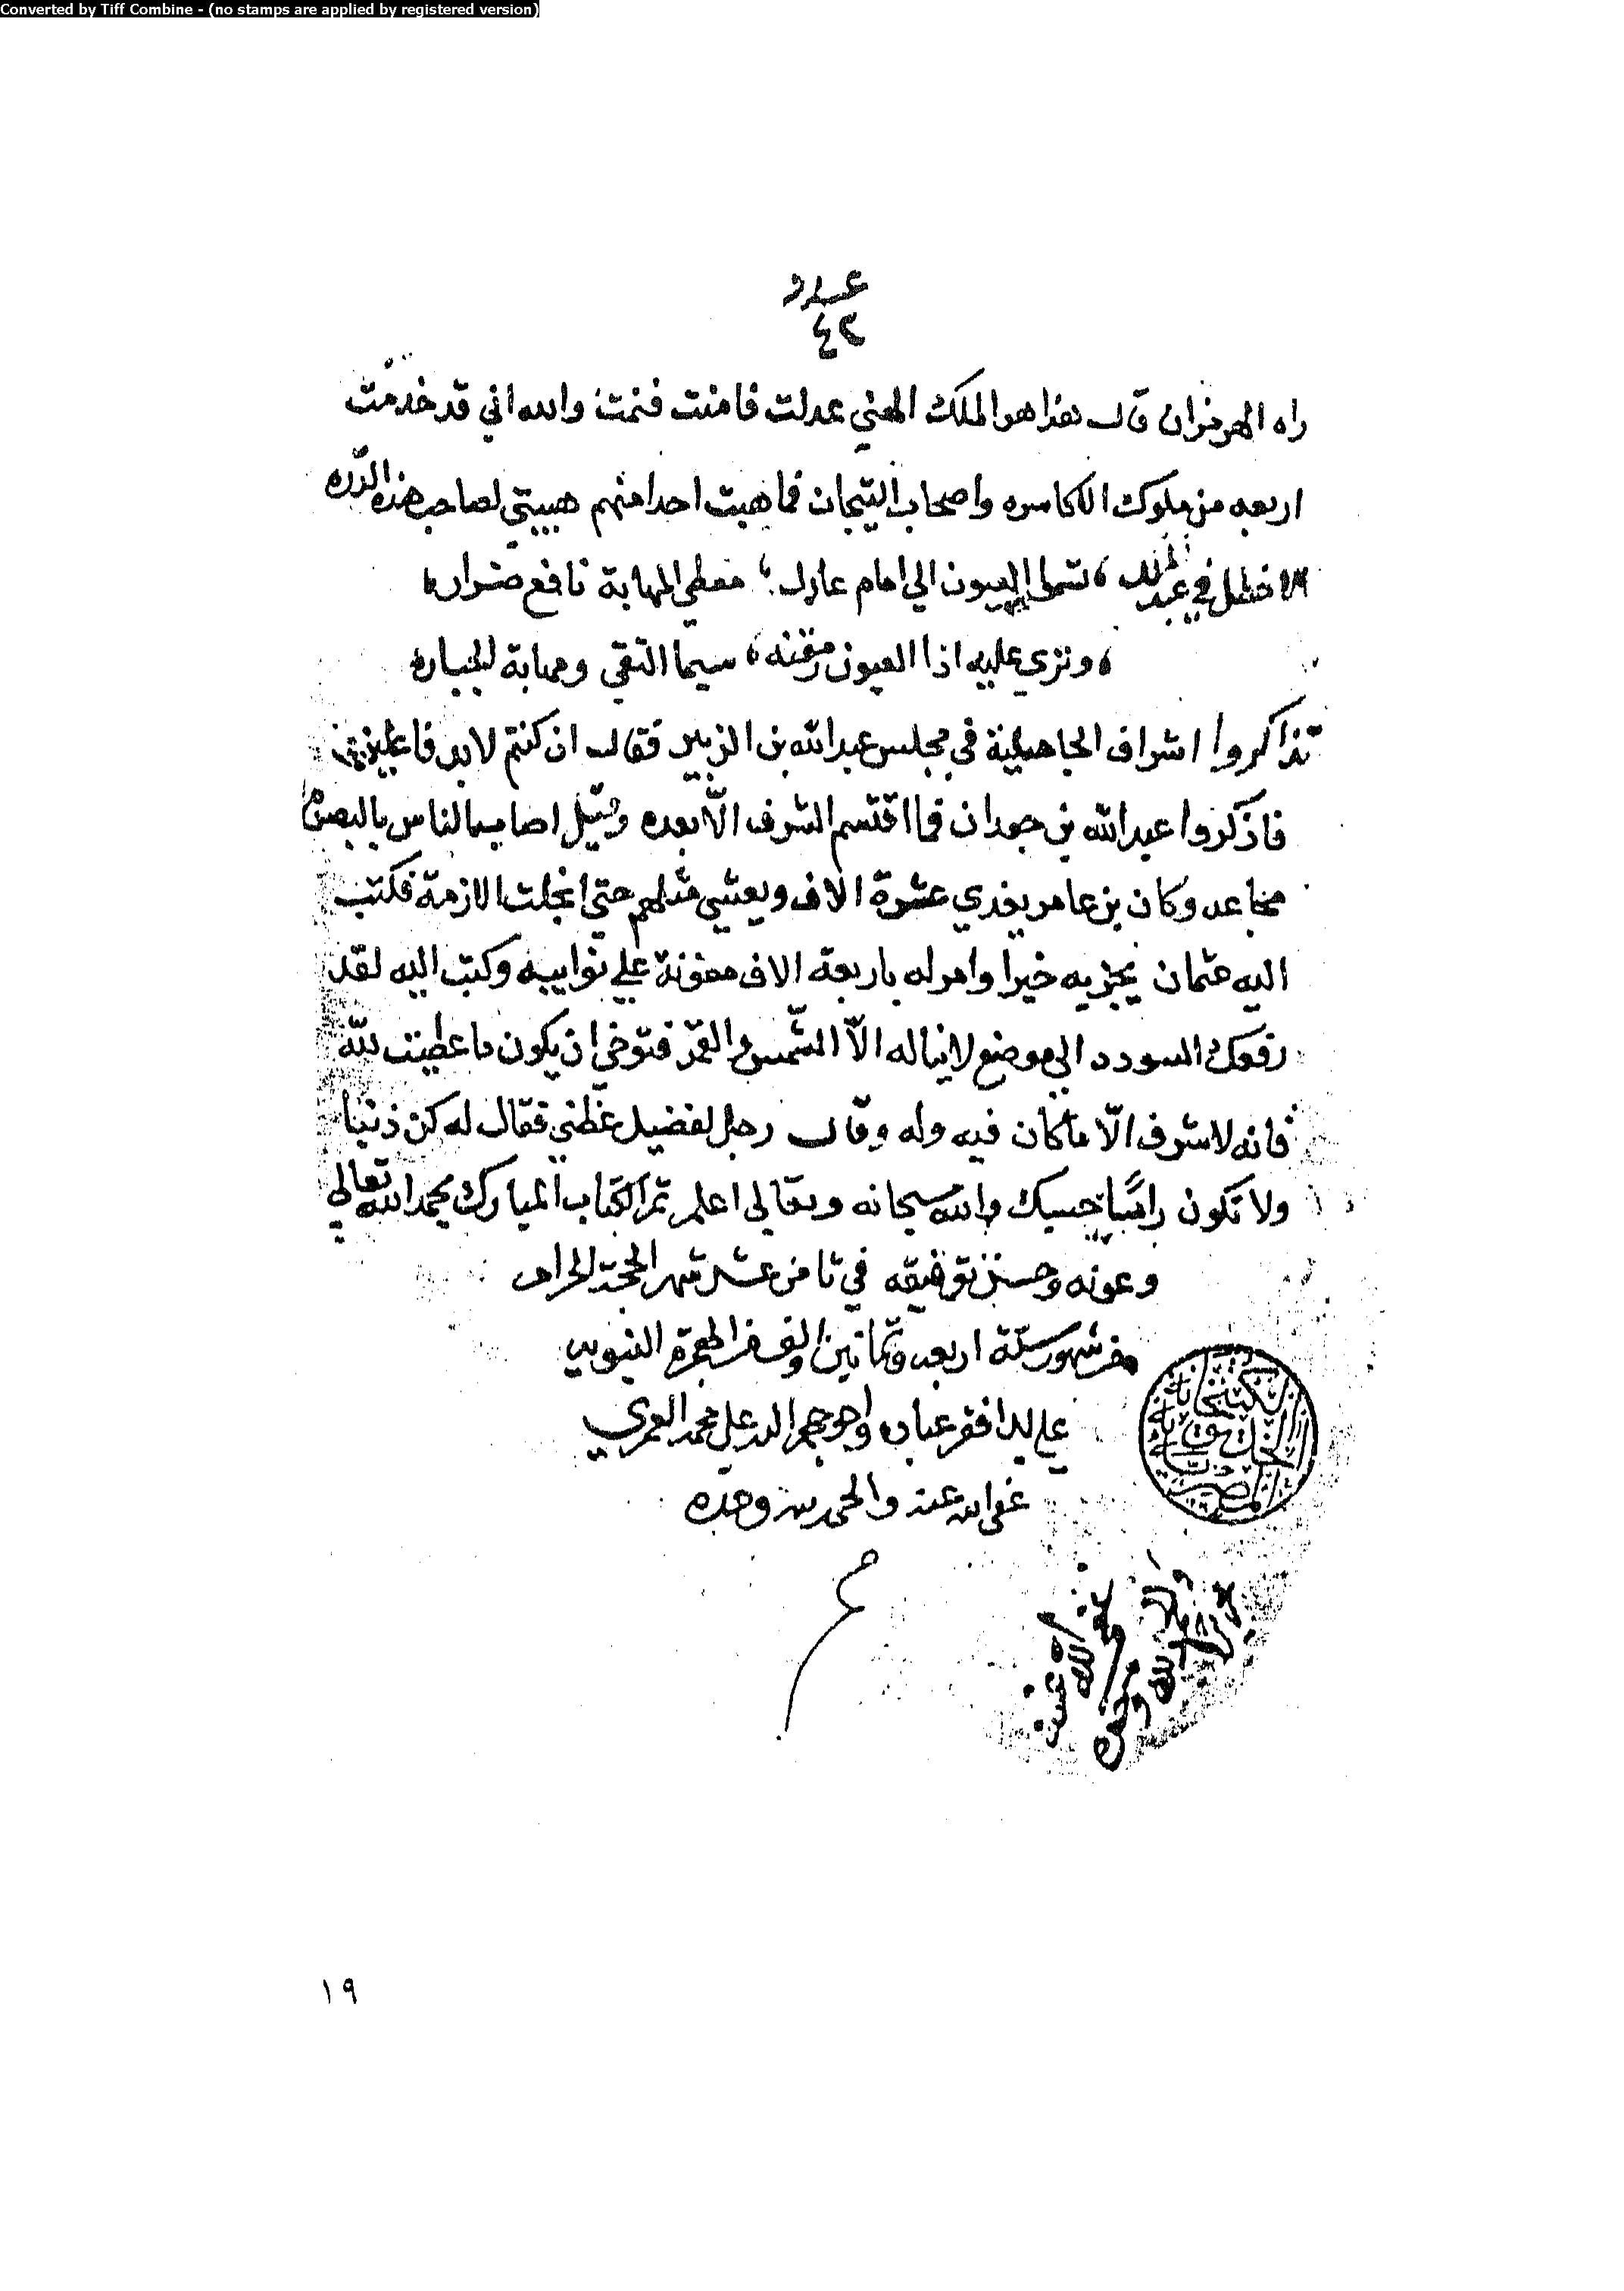 Converted by Tiff Combine - (no stamps are applied by registered version)
عدد
٤٢
راه الهرمزان قال هذا هو الملك الهني عدلت فامنت فنمت والله اني قد خدمت
اربعه من ملوك الاكاسره واصحاب التيجان فما هبت احدا منهم هيبتي لصاحب هذه الدّره
الاخطل في عبد الملك ، تسموا العيون الي امام عادل ، معطي المهابة نافع ضرار ،
، وتري عليه اذا العيون رمقنه ، سيما التقي ومهابة الجبار ،
تذاكروا اشراف الجاهلية في مجلس عبد الله بن الزبير فقال ان كنتم لابد فاعلين
فاذكروا عبد الله بن جدعان فما اقتسم الشرف الّا بعده وقيل اصاب الناس بالبصرة
مجاعه وكان بن عامر يغدي عشرة الاف ويعشي مثلهم حتي انجلت الازمة فكتب
اليه عثمان يجزيه خيرا وامر له باربعة الاف معونة علي نوايبه وكتب اليه لقد
رفعك السودد الي موضع لا يناله الّا الشّمس والقمر فتوخي ان يكون ما عطيت للّه
فانه لا شرف الّا ما كان فيه وله وقال رجل لفضيل عظني فقال له كن ذنبا
ولا تكون راسًا حسبك والله سبحانه وتعالي اعلم تم الكتاب المبارك بحمد الله تعالي
وعونه وحسن توفيقه في ثامن عشر شهر الحجة الحرام
من شهور سنة اربعه وثمانين والف من الهجرة النبويه
علي يد افقر عباده واحوجهم اليه علي محمد العمري
عفي الله عنه والحمد لله وحده
الكتبخانة
الخديوية
المصرية
١٩